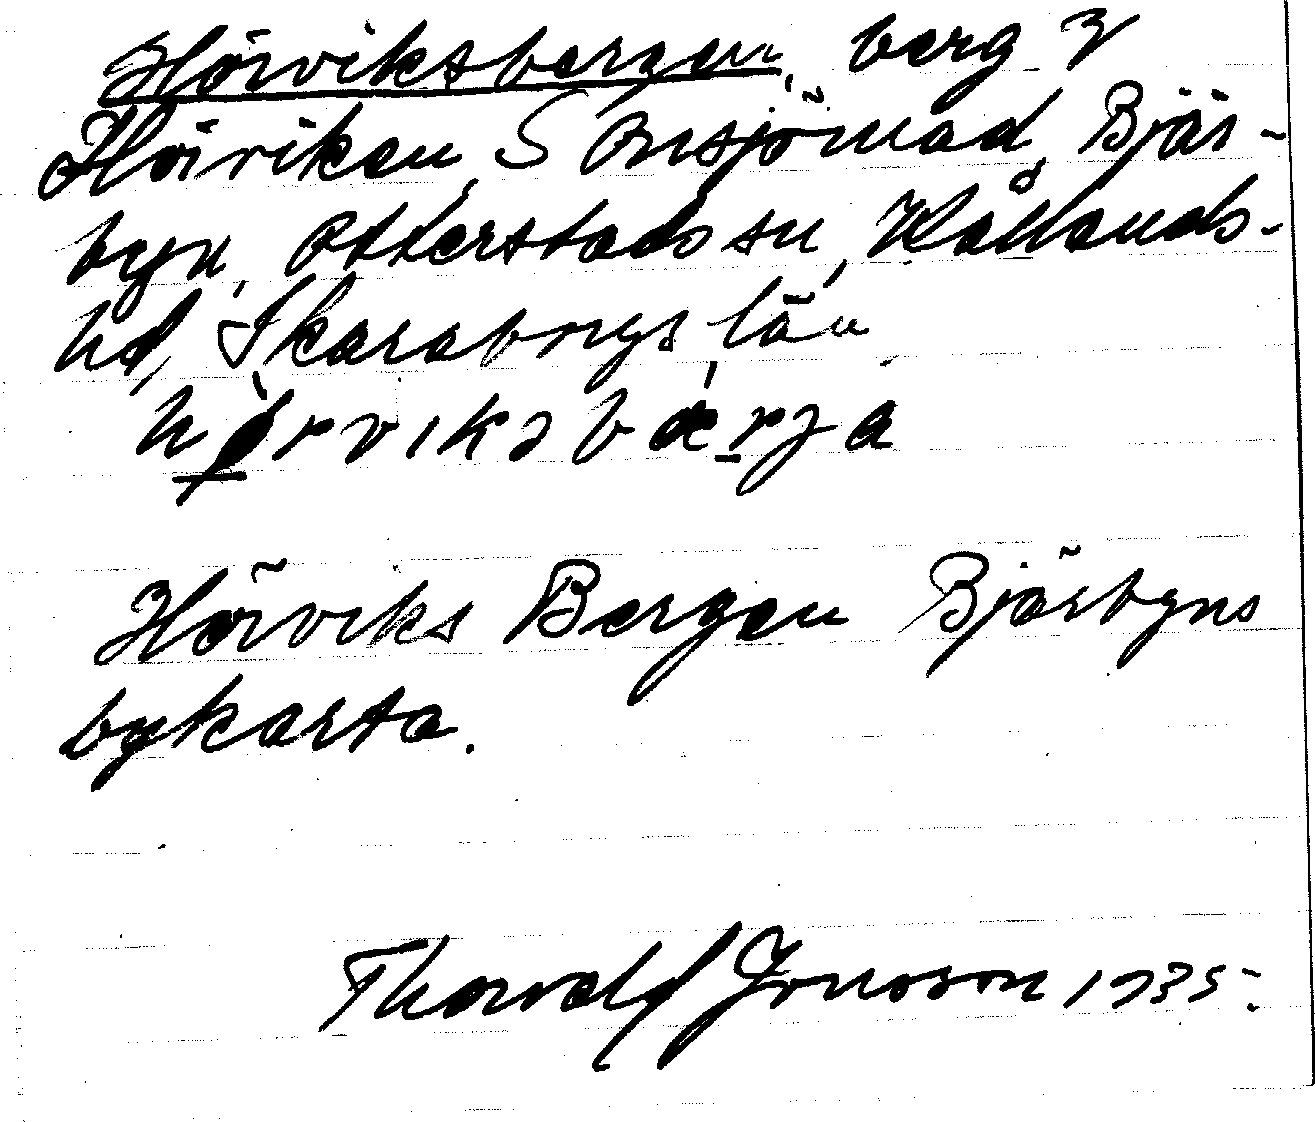 Hörviksbergen, berg i
Hörviken, S Onsjömad, Bjär-
byn, Otterstads sn, Kållands-
hd, Skaraborgs län
hørviksbærja
Hörviks Bergen Bjärbyns
bykarta.
Thorvald Jonsson 1935.